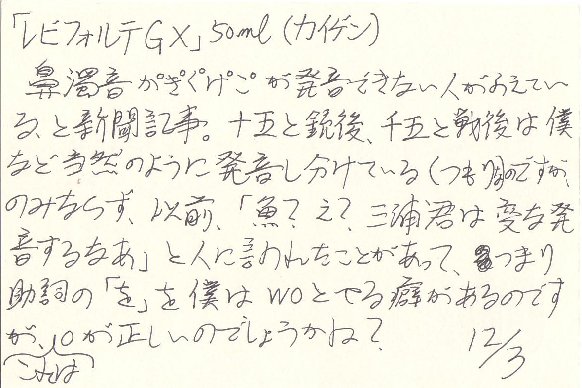 「レビフォルテGX」50ml (カイゲン)
鼻濁音がぎぐげごが発音できない人がふえてい
る、と新聞記事。十五と銃後、千五と戦後は僕
など当然のように発音し分けている(つもりなのですが、
のみならず、以前、「魚? え?、三浦君は変な発
音するなあ」と人に言われたことがあって、つまり
助詞の「を」を僕はWOとやる癖があるのです
が、oが正しいのでしょうかね?
これは
12/3